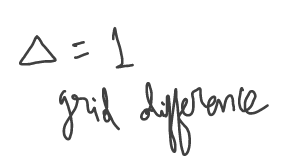 Δ = 1
grid difference